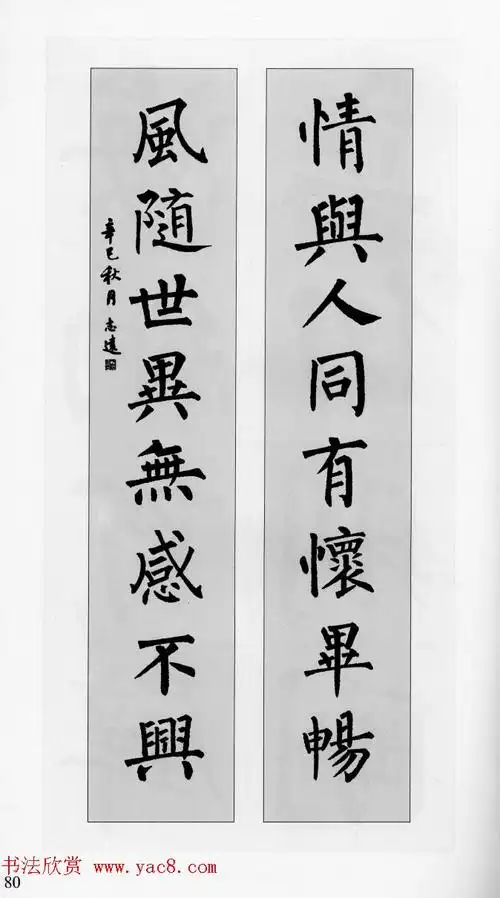 情與人同有懷畢暢
風隨世異無感不興
辛巳秋月 志遠
书法欣赏 www.yac8.com
80